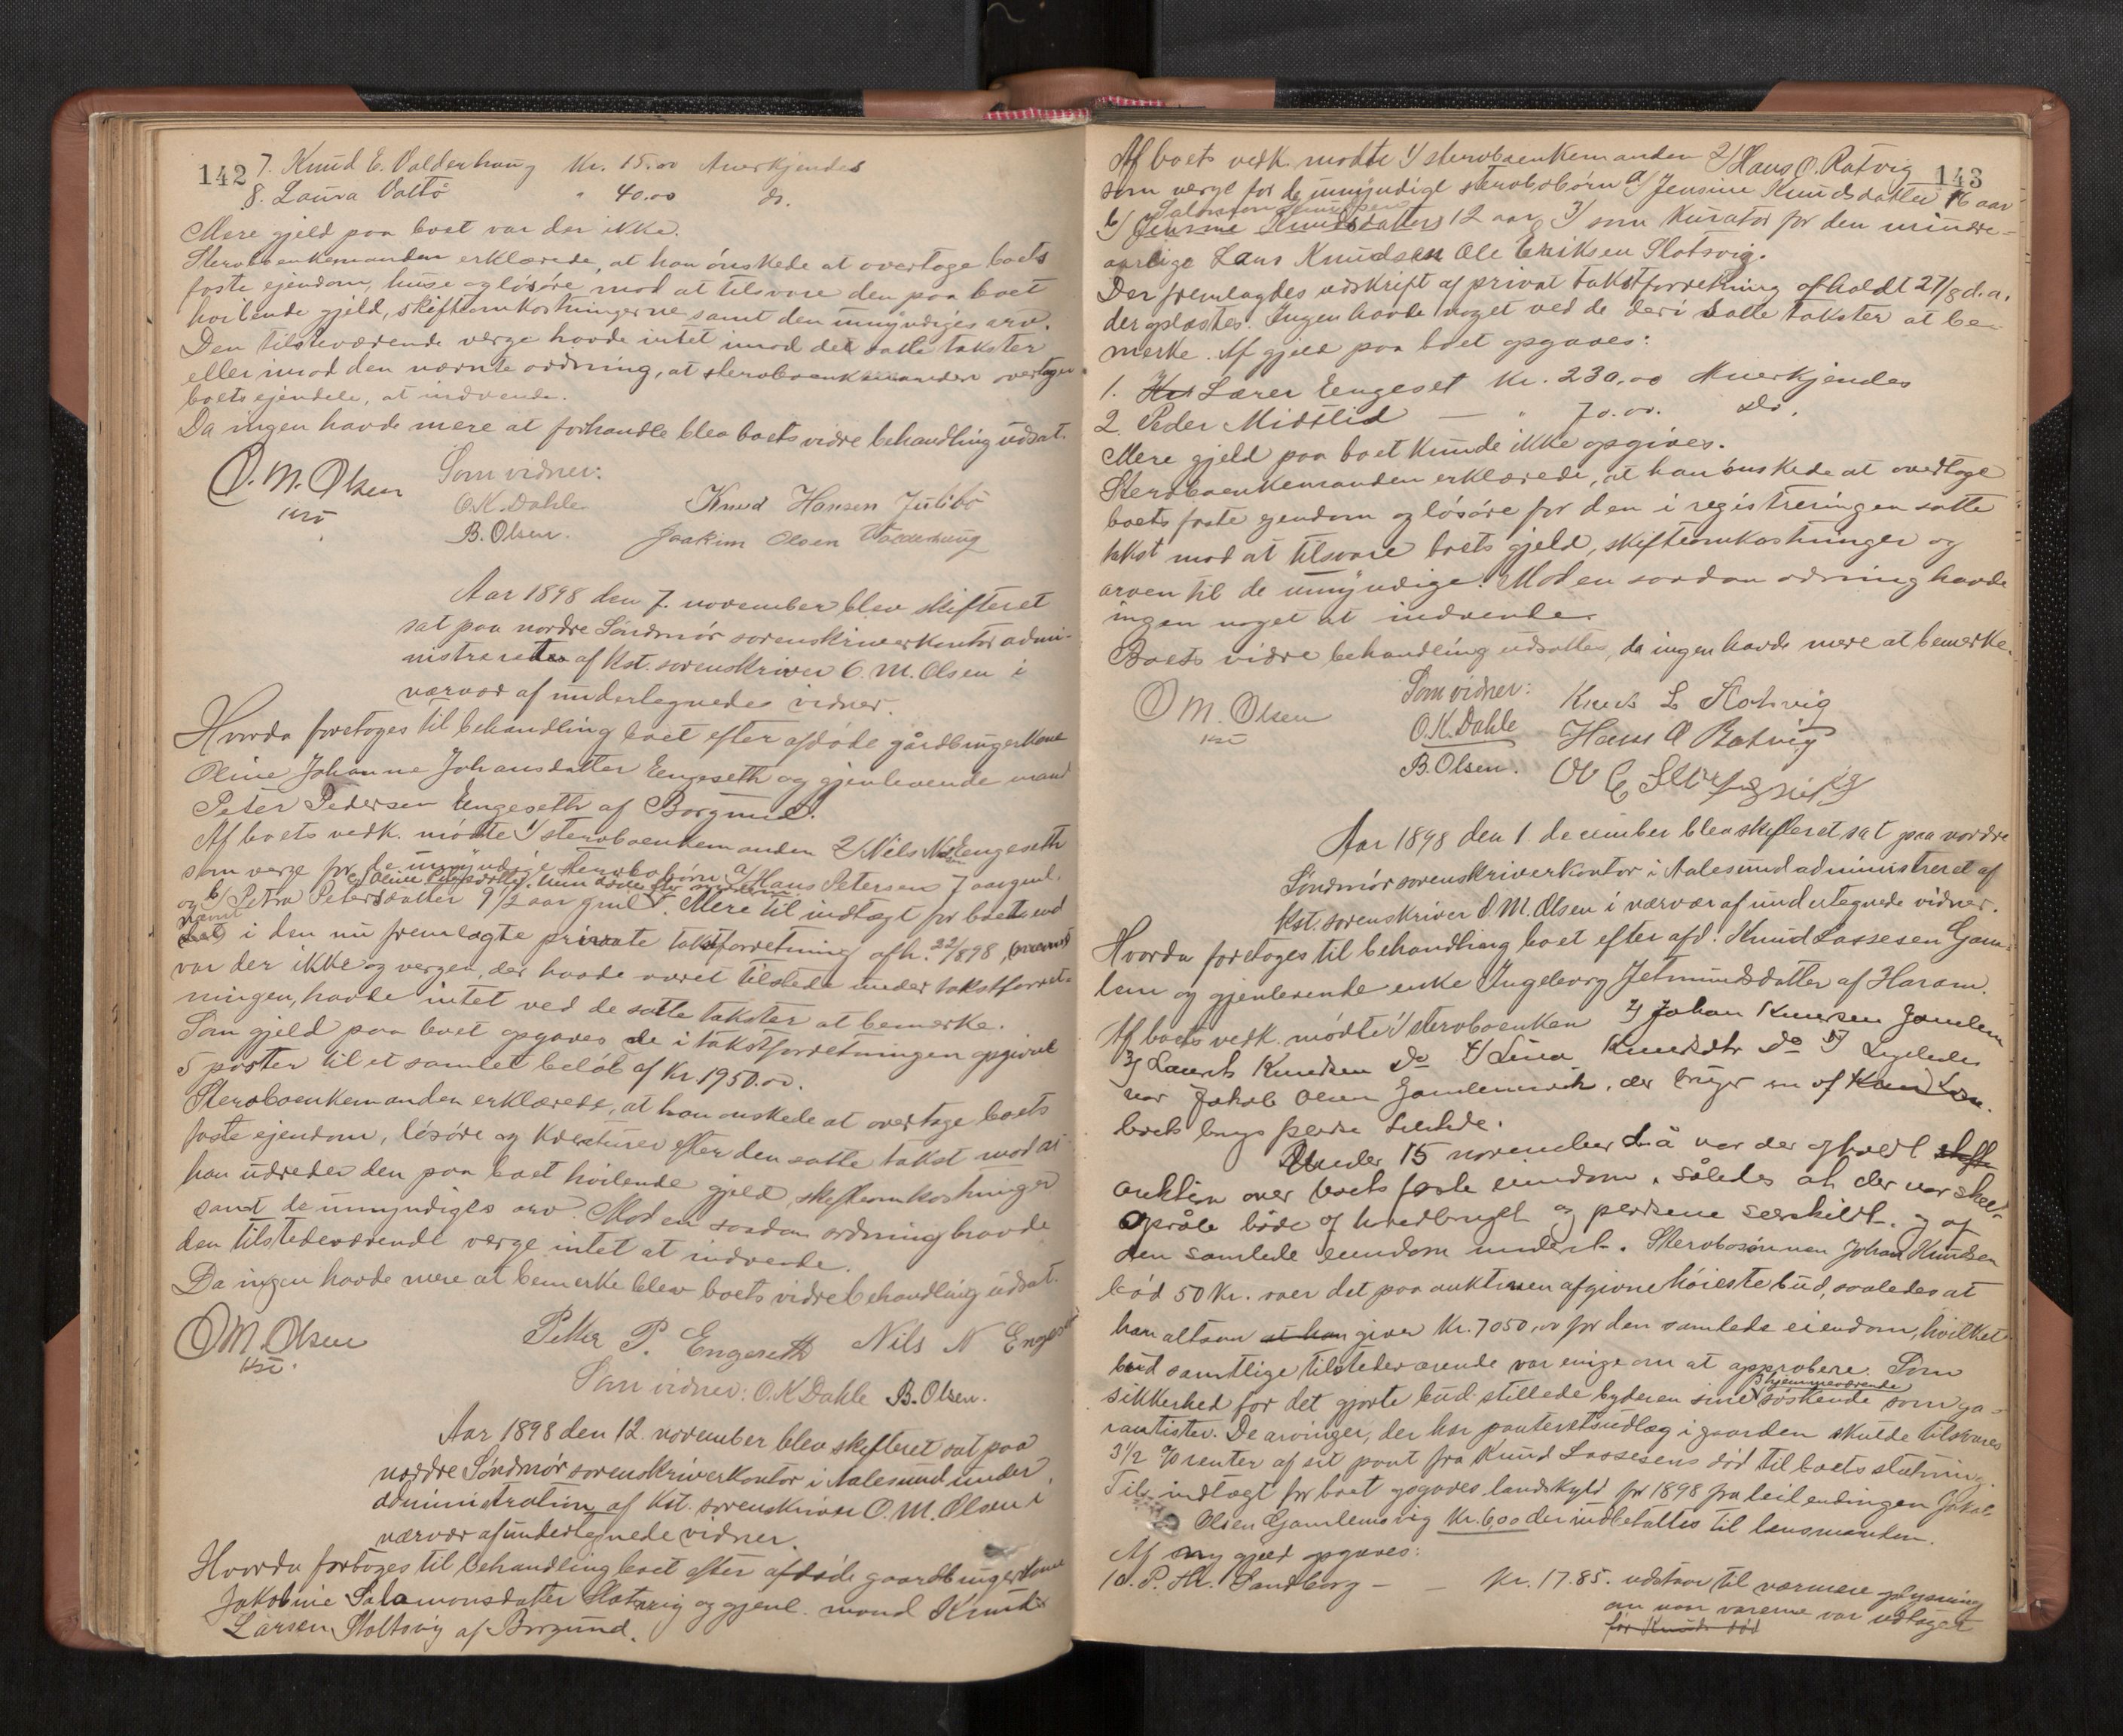 142
7. Knud E. Valderhaug Kr. 15.00 Anerkjendes
8. Laura Valtö " 40.00 do.
Mere gjeld paa boet var der ikke.
Stervboenkemanden erklærede, at han önskede at overtage boets
faste ejendom, huse og lösöre mod at tilsvare den paa boet
hvilende gjeld, skifteomkostningerne samt den umyndiges arv.
Den tilstedeværende verge havde intet imod de satte takster
eller imod den nævnte ordning, at stervboenkemanden overtager
boets ejendele, at indvende.
Da ingen havde mere at forhandle blev boets vidre behandling udsat.
O. M. Olsen Som vidner:
kst O. K. Dahle Knud Hansen Julibö
B. Olsen. Joakim Olsen Valderhaug
Aar 1898 den 7. november blev skifteret
sat paa nordre Söndmör sorenskriverkontor admi-
nistreret af kst. sorenskriver O. M. Olsen i
nærvær af undertegnede vidner.
Hvorda foretoges til behandling boet efter afdöde gårdbrugerkone
Oline Johanne Johansdatter Engeseth og gjenlevende mand
Peter Pedersen Engeseth af Borgund.
Af boets vedk. mödte 1/ stervboenkemanden 2/ Nils N. Engeseth
som verge for de umyndige stervbobörn a/ Hans Petersen 7 aar gml.
og b/ Petra Petersdatter 9 1/2 aar gml. Mere til indtægt for boet end
nævnt i den nu fremlagte private takstforretning afh. 22/8 98
var der ikke og vergen, der havde været tilstede under takstforret-
ningen, havde intet ved de satte takster at bemerke.
Som gjeld paa boet opgaves de i takstforretningen opgivne
5 poster til et samlet belöb af Kr. 1950.00.
Stervboenkemanden erklærede, at han önskede at overtage boets
faste ejendom, lösöre og kreaturer efter den satte takst mod at
han udreder den paa boet hvilende gjeld, skifteomkostninger
samt de umyndiges arv. Mod en saadan ordning havde
den tilstedeværende verge intet at indvende.
Da ingen havde mere at bemerke blev boets vidre behandling udsat.
O M. Olsen Petter P. Engeseth Nils N Engeseth
kst. Som vidner: O. K. Dahle B. Olsen.
Aar 1898 den 12. november blev skifteret sat paa
nordre Söndmör sorenskriverkontor i Aalesund under
administration af kst. sorenskriver O. M. Olsen i
nærvær af undertegnede vidner.
Hvorda foretoges til behandling boet efter afdöde gaardbrugerkone
Jakobine Salamonsdatter Slotsvig og gjenl. mand Knud
Larsen Slottsvig af Borgund.
143
Af boets vedk. mödte 1/ stervboenkemanden 2/ Hans O. Ratvig
som verge for de umyndige stervbobörn a/ Jensine Knudsdatter 16 aar
Salomon Knudsen
b/ Jensine Knudsdatter 12 aar, 3/ som kurator for den mindre-
aarlige Lars Knudsen Ole Eriksen Slotsvig.
Der fremlagdes udskrift af privat takstforretning afholdt 27/8 d. a.
der oplæstes. Ingen havde noget ved de deri satte takster at be-
merke. Af gjeld paa boet opgaves:
1. Lærer Engeset Kr. 230,00 Anerkjendes
2. Peder Midtlid — " 70.00. do.
Mere gjeld paa boet kunde ikke opgives.
Stervboenkemanden erklærede, at han önskede at overtage
boets faste ejendom og lösöre for den i registreringen satte
takst mod at tilsvare boets gjeld, skifteomkostninger og
arven til de umyndige. Mod en saadan ordning havde
ingen noget at indvende.
Boets vidre behandling udsattes, da ingen havde mere at bemerke.
O M. Olsen Som vidner: Knud L Slotsvig
kst O. K. Dahle Hans O Ratvig
B. Olsen. Ol E Slotsvig
Aar 1898 den 1. december blev skifteret sat paa nordre
Söndmör sorenskriverkontor i Aalesund administreret af
kst. sorenskriver O. M. Olsen i nærvær af undertegnede vidner.
Hvorda foretoges til behandling boet efter afd. Knud Lassesen Gam-
lem og gjenlevende enke Ingeborg Jetmundsdatter af Haram.
Af boets vedk. mödte 1/ stervboenken 2/ Johan Knudsen Gamlem
3/ Laurits Knudsen Do 4/ Lina Knudsdtr Do 5/ Ligeledes
var Jakob Olsen Gamlemsvik, der bruger en af
boets tilstede.
Under 15 november d å var der afholdt
auktion over boets faste eiendom, således at der var skeet
opråb både af hovedbruget og særskildt, og af
den samlede eiendom underet. Stervbosönnen Johan Knudsen
böd 50 Kr. over det paa auktionen afgivne höieste bud, saaledes at
han altsaa at han giver Kr. 7050,00 for den samlede eiendom, hvilket
bud samtlige tilstedeværende var enige om at approbere. Som
3 hjemmeværende
sikkerhed for det gjorte bud stillede byderen sine söskende som ga-
rantister. De arvinger, der har panteretsudlæg i gaarden skulde tilsvares
3 1/2 % renter af sit pant fra Knud Lassesens död til boets slutning.
Til indtægt for boet opgaves landskyld for 1898 fra leilendingen Jakob
Olsen Gamlemsvig Kr. 6,00 der indbetaltes til lensmanden.
Af ny gjeld opgaves:
10. P. Hr. Sandborg — — Kr. 17.85. udstaar til nærmere oplysning
om naar varerne var udtaget
för Knuds död